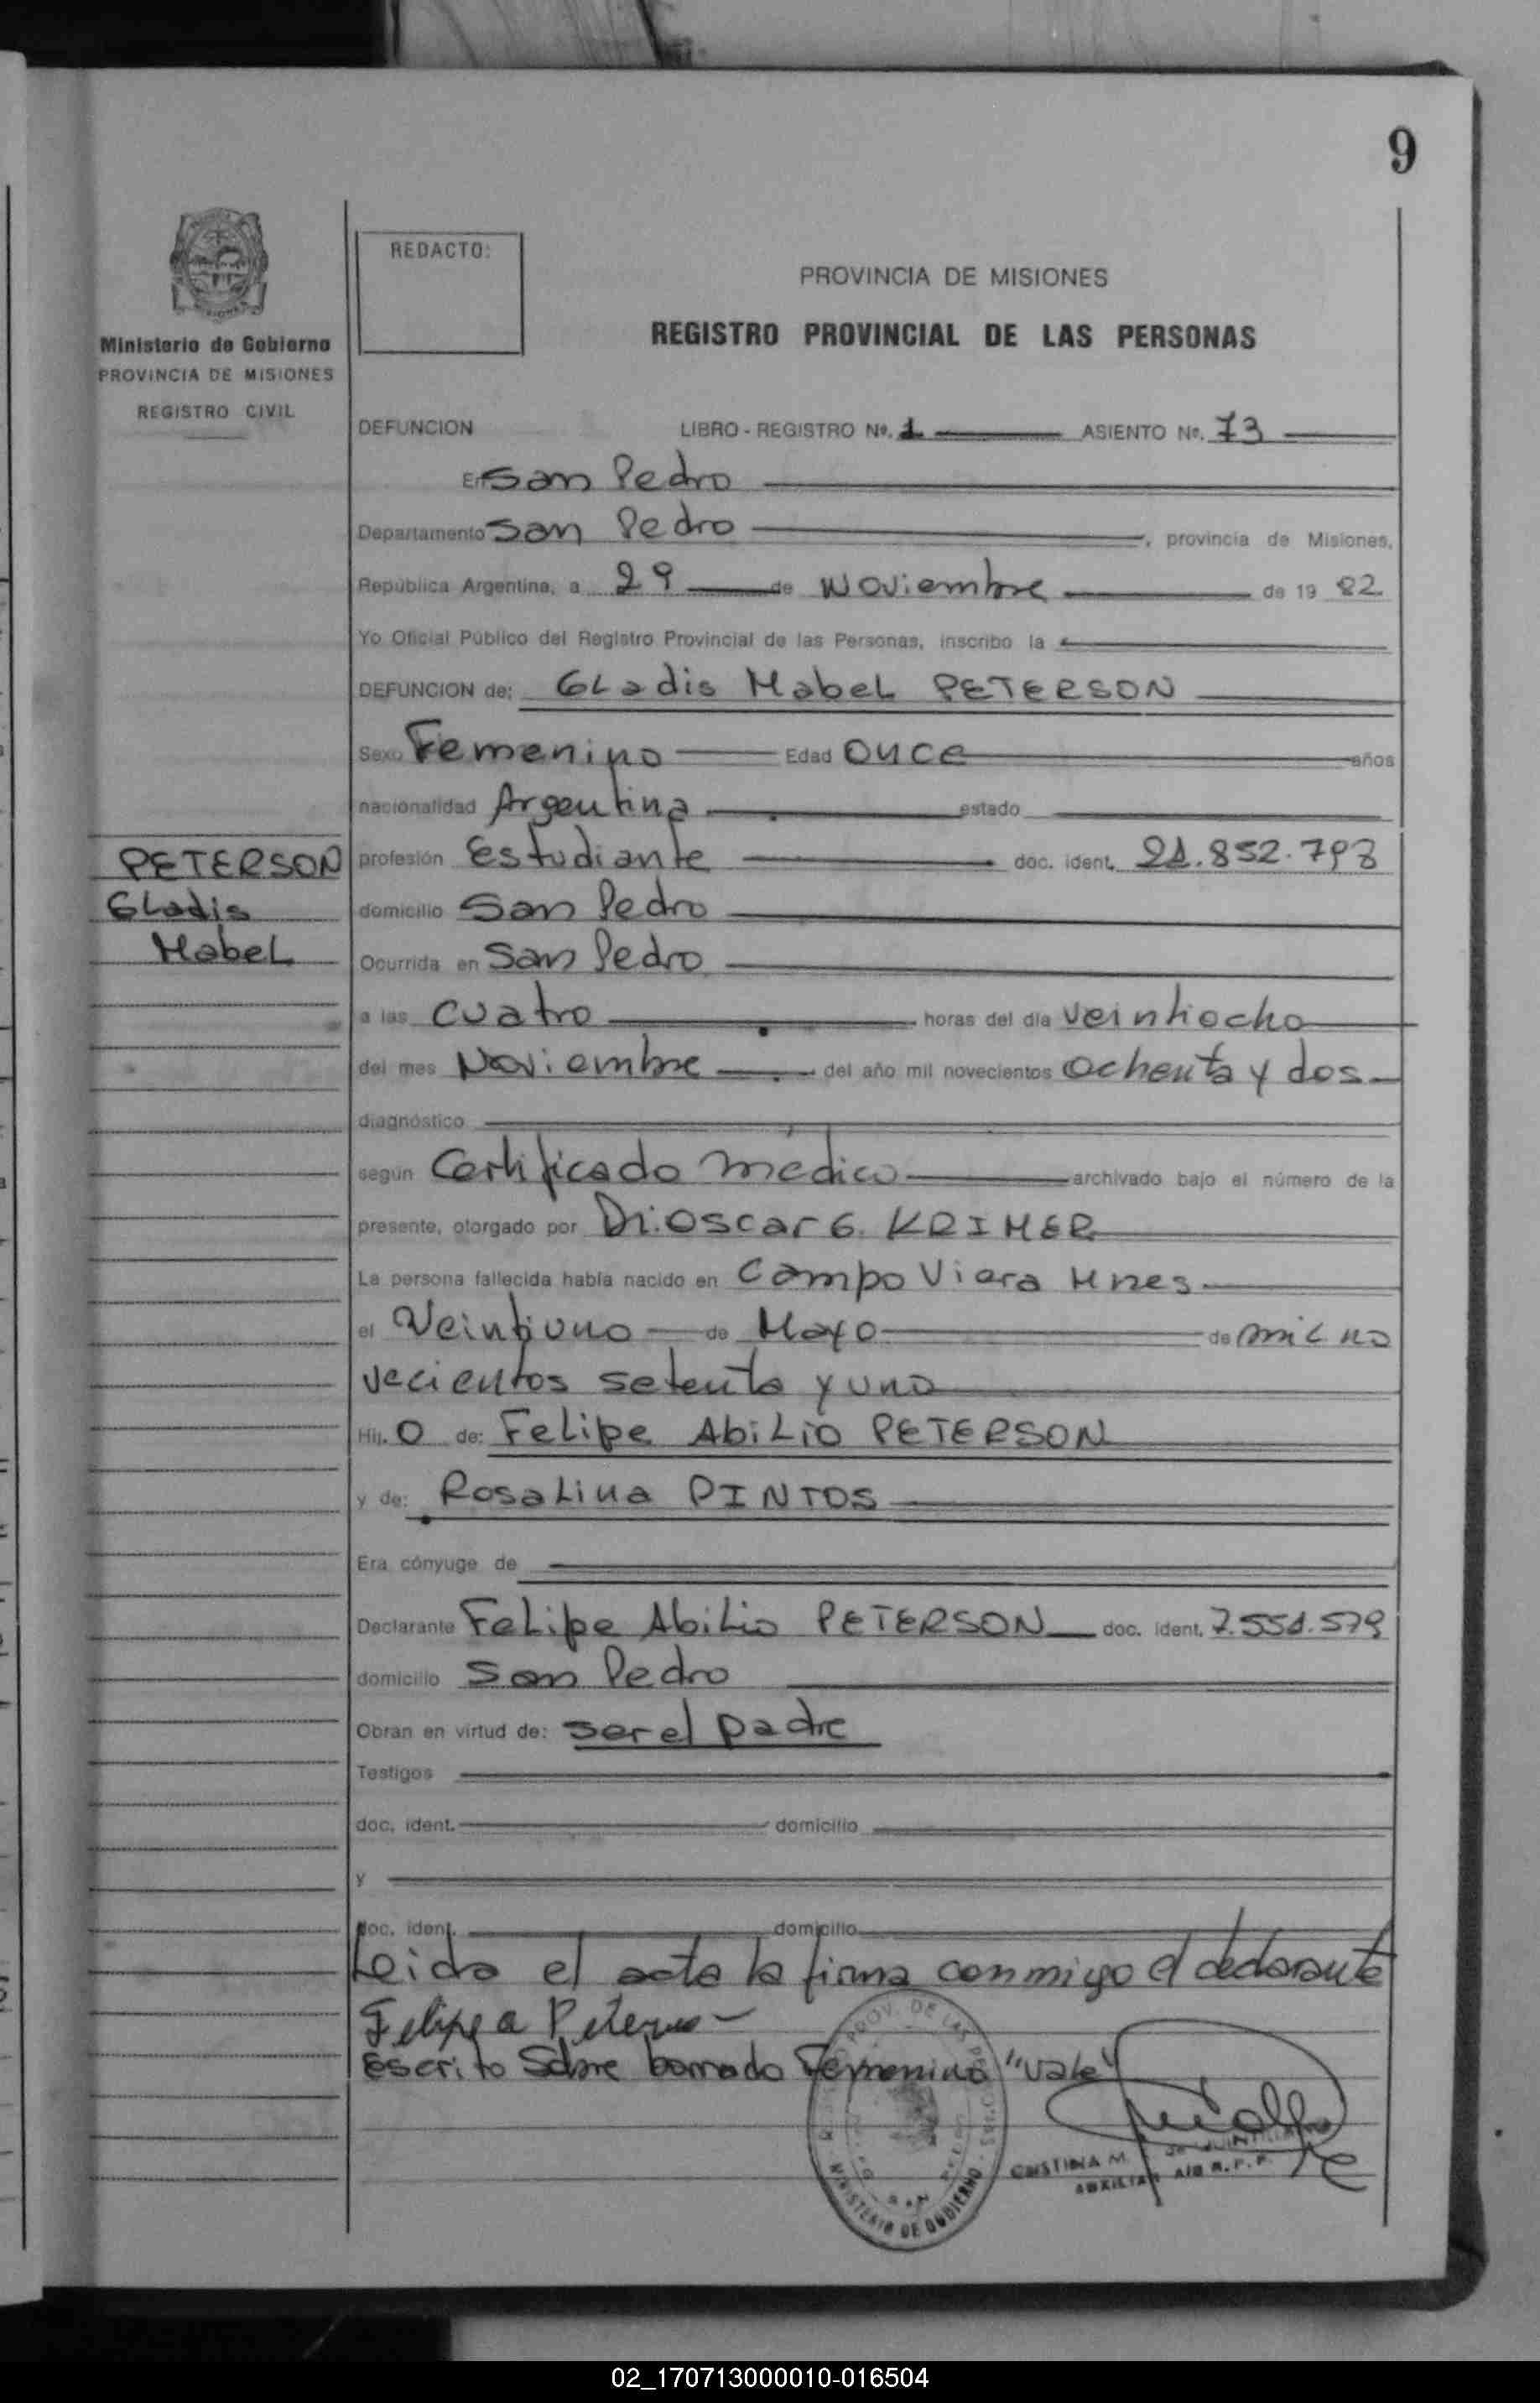 9
REDACTO:
PROVINCIA DE MISIONES
REGISTRO PROVINCIAL DE LAS PERSONAS
Ministerio de Gobierno
PROVINCIA DE MISIONES
REGISTRO CIVIL
DEFUNCION LIBRO - REGISTRO Nº. 1 ASIENTO Nº. 73
En San Pedro
Departamento San Pedro, provincia de Misiones,
República Argentina, a 29 de Noviembre de 19 82
Yo Oficial Público del Registro Provincial de las Personas, inscribo la
DEFUNCION de: Gladis Mabel PETERSON
Sexo Femenino Edad Once años
nacionalidad Argentina estado
PETERSON
Gladis
Mabel
profesión Estudiante doc. ident. 21.852.793
domicilio San Pedro
Ocurrida en San Pedro
a las cuatro horas del día veintiocho
del mes Noviembre del año mil novecientos ochenta y dos
diagnóstico
según Certificado medico archivado bajo el número de la
presente, otorgado por Dr. Oscar G. KRIMER
La persona fallecida había nacido en Campo Viera Mnes
el Veintiuno de Mayo de mil no
vecientos setenta y uno
Hij. O de: Felipe Abilio PETERSON
y de: Rosalina PINTOS
Era cónyuge de
Declarante Felipe Abilio PETERSON doc. ident. 7.551.579
domicilio San Pedro
Obran en virtud de: ser el padre
Testigos
doc. ident. domicilio
y
doc. ident. domicilio
Leida el acta la firma conmigo el declarante
Felipe a Peterson
Escrito Sobre borrado Femenino "vale"
PROV. DE LAS
MINISTERIO DE GOBIERNO
CRISTINA M.
AUXILIAR A/C R.P.P.
02_170713000010-016504